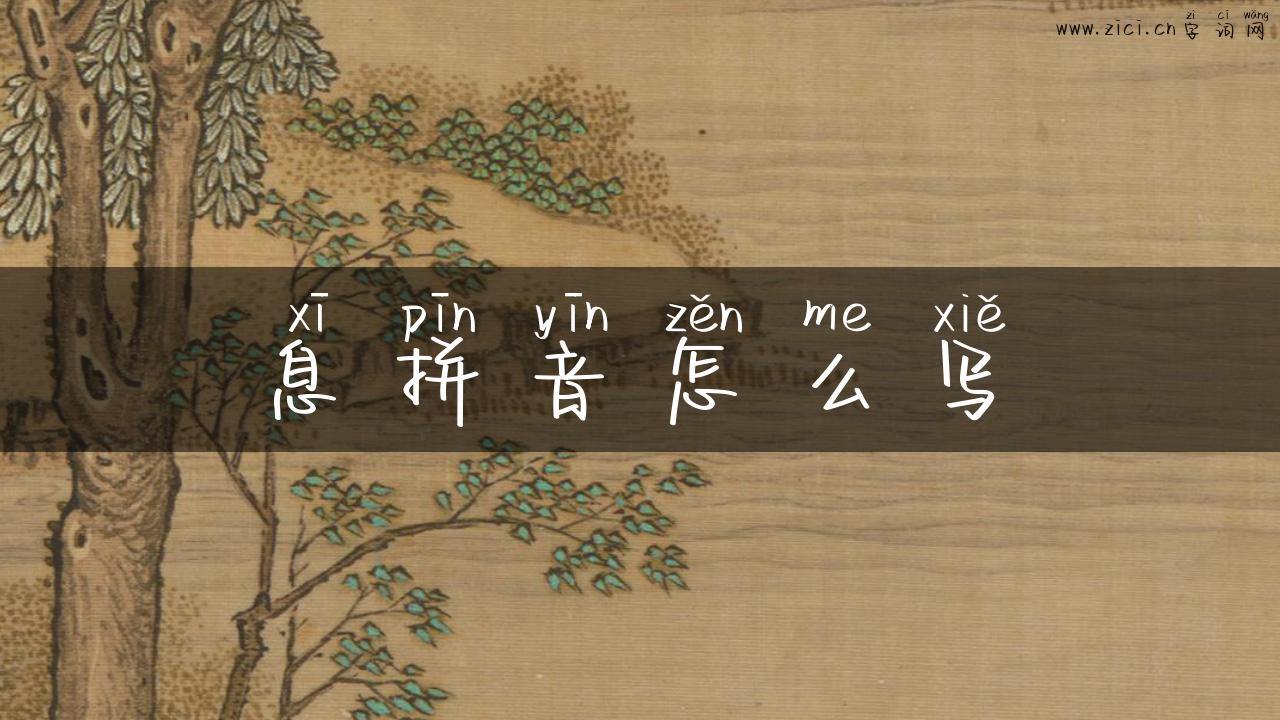 zì cí wǎng
www.zici.cn 字 词 网
xī pīn yīn zěn me xiě
息 拼 音 怎 么 写